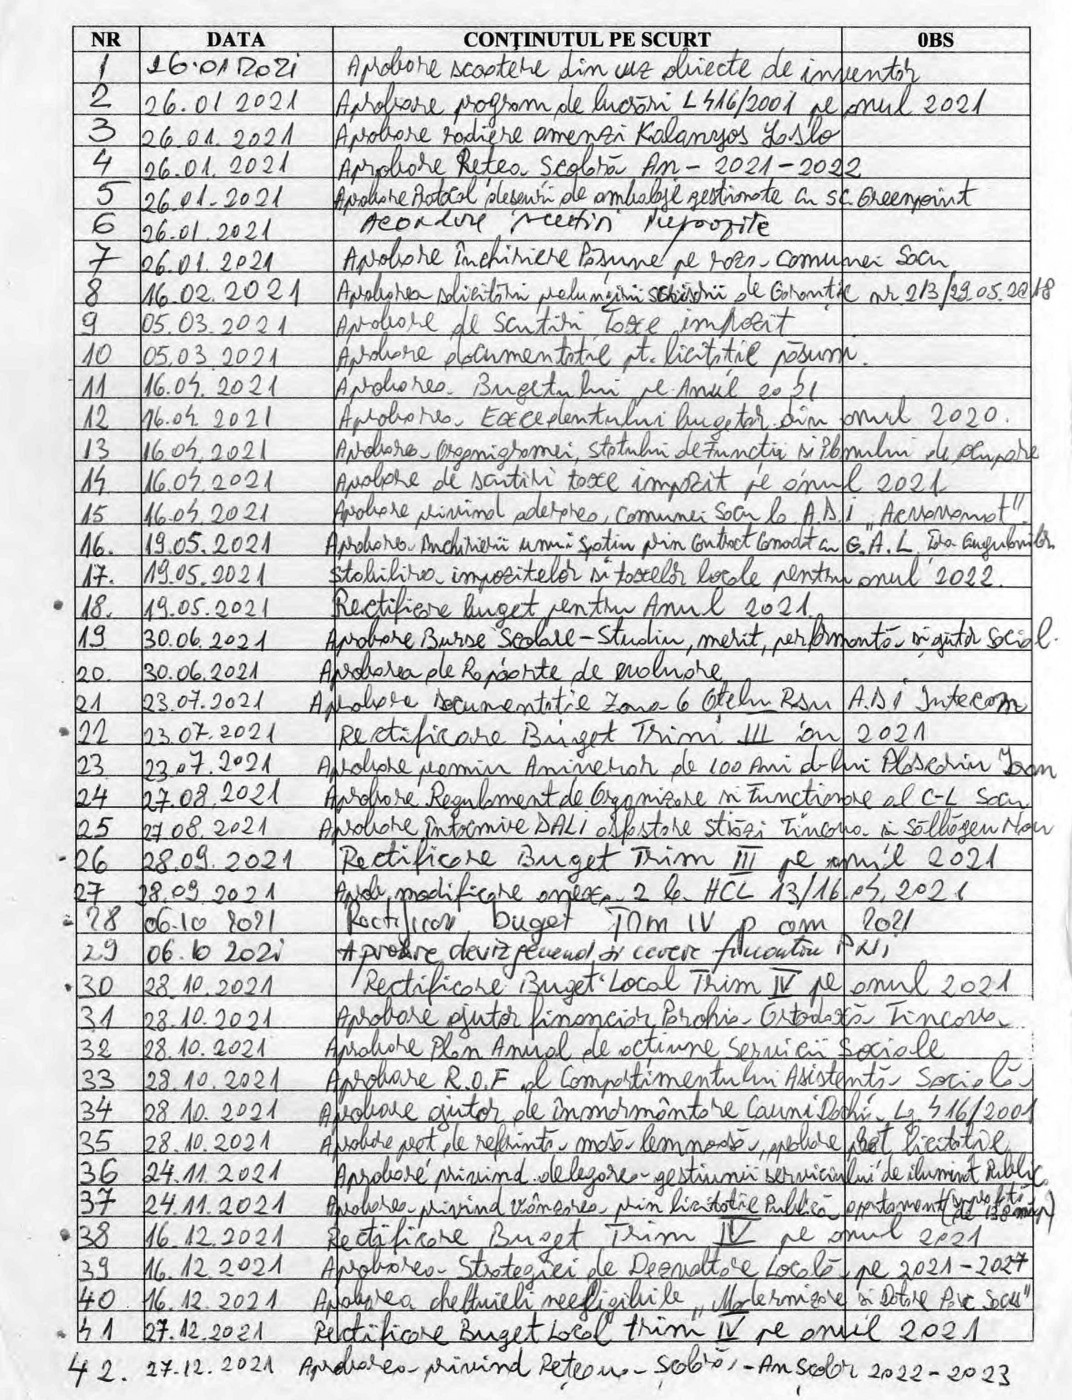 NR DATA CONŢINUTUL PE SCURT 0BS
1 26.01 2021 Aprobare scoatere din uz obiecte de inventar
2 26.01 2021 Aprobare program de lucrări L 416/2001 pe anul 2021
3 26.01.2021 Aprobare radiere amenzi Kalanyos Laslo
4 26.01.2021 Aprobare Retea Scolară An - 2021-2022
5 26.01.2021 Aprobare Protocol deseuri de ambalaje gestionate cu SC Greenpoint
6 26.01.2021 Acordare
7 26.01.2021 Aprobare închiriere Păsune pe raza comunei Sacu
8 16.02.2021 Aprobarea solicitării prelungirii scrisorii de Garantie nr 213/29.05.2018
9 05.03.2021 Aprobare de scutiri taxe impozit
10 05.03.2021 Aprobare documentatie pt. licitatie păsuni.
11 16.04.2021 Aprobarea Bugetului pe Anul 2021
12 16.04.2021 Aprobarea Excedentului bugetar din anul 2020.
13 16.04.2021 Aprobarea Organigramei, Statului de Functii si Planului de ocupare
14 16.04.2021 Aprobare de scutiri taxe impozit pe anul 2021
15 16.04.2021 Aprobare privind aderarea comunei Sacu la A.D.I „Acvavanat".
16. 19.05.2021 Aprobarea Închirierii unui Spatiu prin Contract Comodat cu G.A.L. Tara Gugulanilor
17. 19.05.2021 Stabilirea impozitelor si taxelor locale pentru anul 2022.
18. 19.05.2021 Rectificare buget pentru Anul 2021
19 30.06.2021 Aprobare Burse Scolare-Studiu, merit, performantă si ajutor Social.
20. 30.06.2021 Aprobarea de Rapoarte de evaluare
21 23.07.2021 Aprobare Documentatie Zona 6 Otelu Rosu A.D.I Intercom
22 23.07.2021 Rectificare Buget Trim III an 2021
23 23.07.2021 Aprobare premiu Aniversar de 100 Ani d-lui Ploscariu Ioan
24 27.08.2021 Aprobare Regulament de Organizare si Functionare al C-L Sacu
25 27.08.2021 Aprobare întocmire DALI asfaltare Străzi Tincova si Sălbăgelu Nou
26 28.09.2021 Rectificare Buget Trim III pe anul 2021
27 28.09.2021 Aprob. modificare anexa 2 la HCL 13/16.04.2021
28 06.10 2021 Rectificare buget Trim IV p an 2021
29 06.10 2021 Aprobare deviz general si cerere finantare PNI
30 28.10.2021 Rectificare Buget Local Trim IV pe anul 2021
31 28.10.2021 Aprobare ajutor financiar Parohia Ortodoxă Tincova
32 28.10.2021 Aprobare Plan Anual de actiune Servicii Sociale
33 28.10.2021 Aprobare R.O.F al Compartimentului Asistentă Socială
34 28.10.2021 Aprobare ajutor de înmormântare Cauni Dochia Lg 416/2001
35 28.10.2021 Aprobare pret de referintă masă lemnoasă, aprobare pret licitatie
36 24.11.2021 Aprobare privind delegarea gestiunii serviciului de iluminat Public
37 24.11.2021 Aprobarea privind vânzarea prin licitatie Publică apartament (suprafată de 138 mp)
38 16.12.2021 Rectificare Buget Trim IV pe anul 2021
39 16.12.2021 Aprobarea Strategiei de Dezvoltare Locală pe 2021-2027
40 16.12.2021 Aprobarea cheltuieli neeligibile „Modernizare si Dotare Parc Sacu"
41 27.12.2021 Rectificare Buget Local trim IV pe anul 2021
42. 27.12.2021 Aprobarea privind Reteaua Scolară - An Scolar 2022-2023